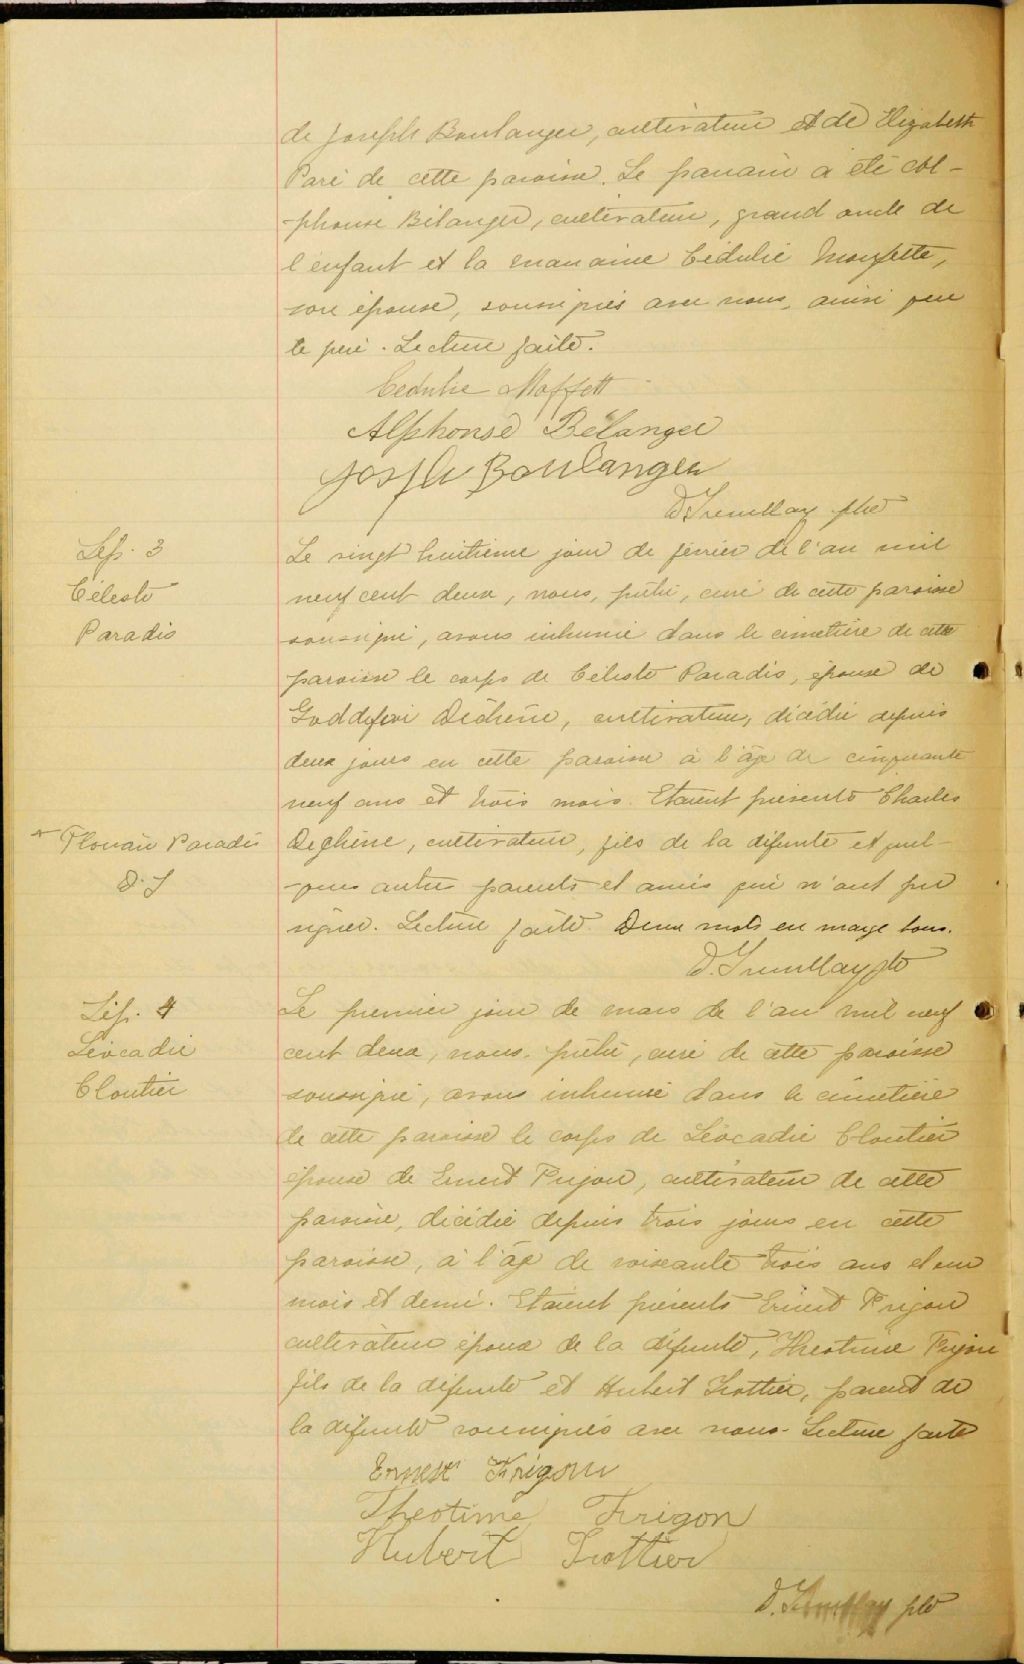 de Joseph Boulanger, cultivateur et de Elizabeth
Paré de cette paroisse. Le parrain a été Al-
-phonse Bélanger, cultivateur, grand oncle de
l'enfant et la marraine Cédulie Moffette,
son épouse, soussignés avec nous, ainsi que
le père. Lecture faite.
Cedulie Moffett
Alphonse Bélanger
Joseph Boulanger
D. Tremblay ptre
Sép. 3
Céleste
Paradis
Le vingt huitième jour de février de l'an mil
neuf cent deux, nous, prêtre, curé de cette paroisse
soussigné, avons inhumé dans le cimetière de cette
paroisse le corps de Céleste Paradis, épouse de
Goddefroi Dechêne, cultivateur, décédée depuis
deux jours en cette paroisse à l'âge de cinquante
neuf ans et trois mois. Etaient présents Charles
+ Florian Paradis
D. T
Dechêne, cultivateur, fils de la défunte et quel-
-ques autres parents et amis qui n'ont pu
signer. Lecture faite. Deux mots en marge bons.
D. Tremblay ptre
Sép. 4
Léocadie
Cloutier
Le premier jour de mars de l'an mil neuf
cent deux, nous, prêtre, curé de cette paroisse
soussigné, avons inhumé dans le cimetière
de cette paroisse le corps de Léocadie Cloutier
épouse de Ernest Frigon, cultivateur de cette
paroisse, décédée depuis trois jours en cette
paroisse, à l'âge de soixante trois ans et un
mois et demi. Etaient présents Ernest Frigon
cultivateur époux de la défunte, Theotime Frigon
fils de la défunte et Hubert Trottier, parent de
la défunte soussignés avec nous. Lecture faite
Ernest Frigon
Theotime Frigon
Hubert Trottier
D. Tremblay ptre